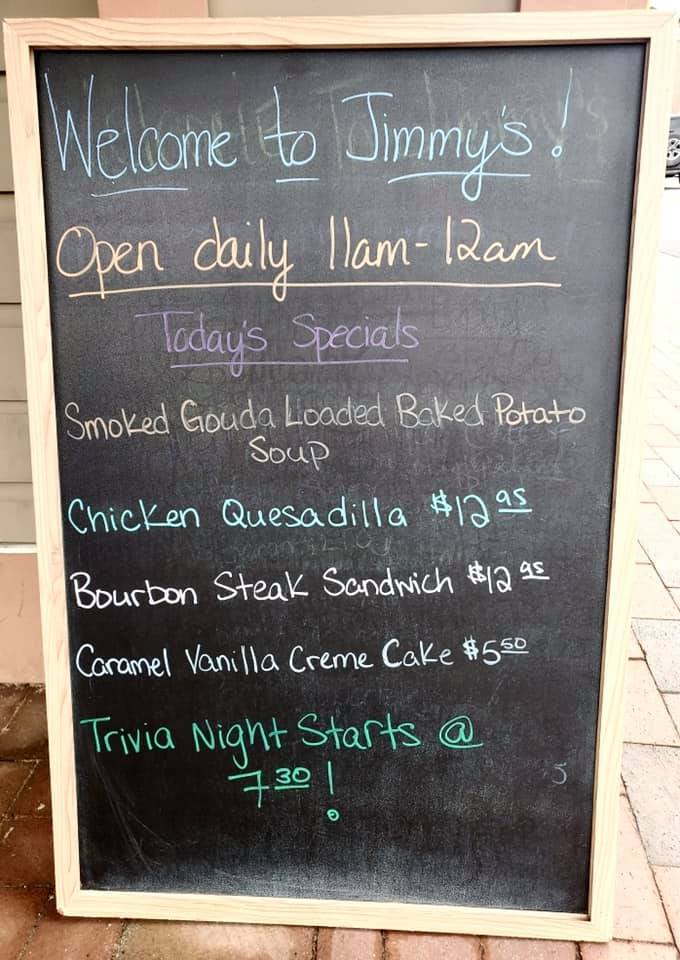 Welcome to Jimmy's!
Open daily 11am-12am
Today's Specials
Smoked Gouda Loaded Baked Potato
Soup
Chicken Quesadilla $12 95
Bourbon Steak Sandwich $12 95
Caramel Vanilla Creme Cake $5 50
Trivia Night Starts @
7 30 !
5